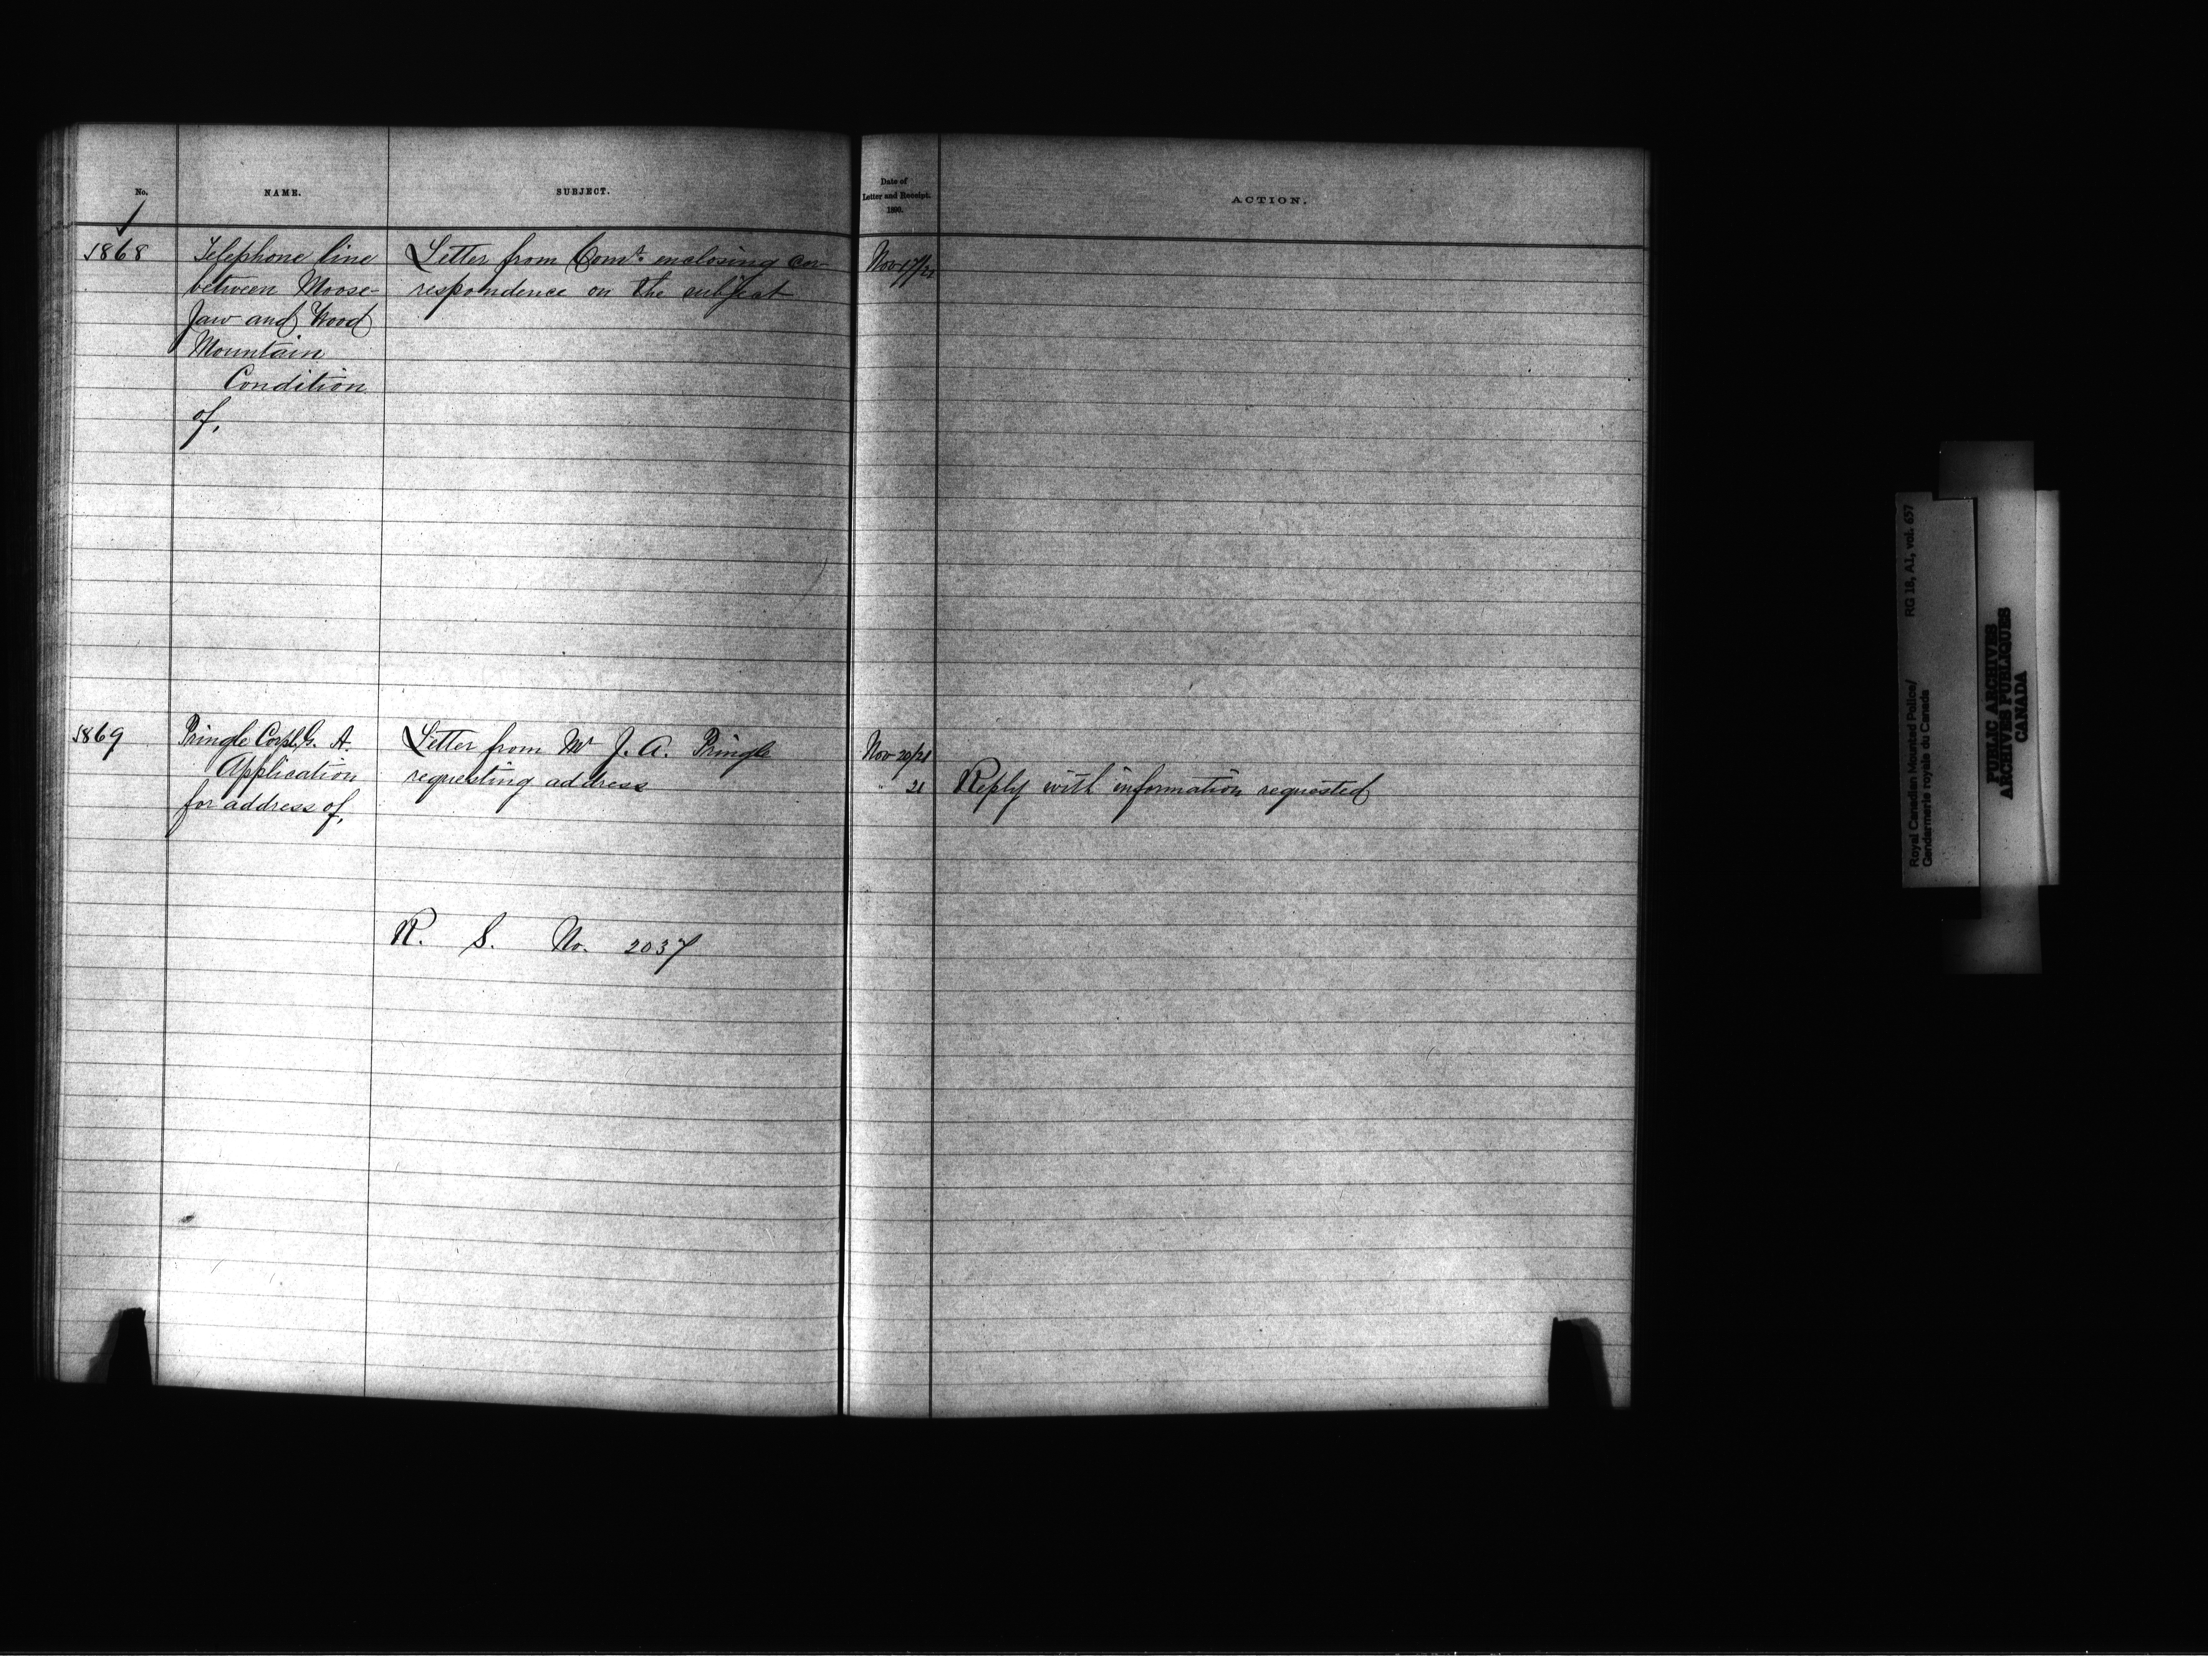 No.
NAME.
SUBJECT.
Date of
Letter and Receipt.
1890.
ACTION.
1868
Telephone line
between Moose-
Jaw and Wood
Mountain
Condition
of.
Letter from Comr. enclosing cor-
respondence on the subject
Nov 17/21
1869
Pringle Corpl. G. A.
Application
for address of.
Letter from Mr J. A. Pringle
requesting address
Nov 20/21
" 21
Reply with information requested
R. S. No. 2037
Royal Canadian Mounted Police/
Gendarmerie royale du Canada
RG 18, A1, vol. 657
PUBLIC ARCHIVES
ARCHIVES PUBLIQUES
CANADA